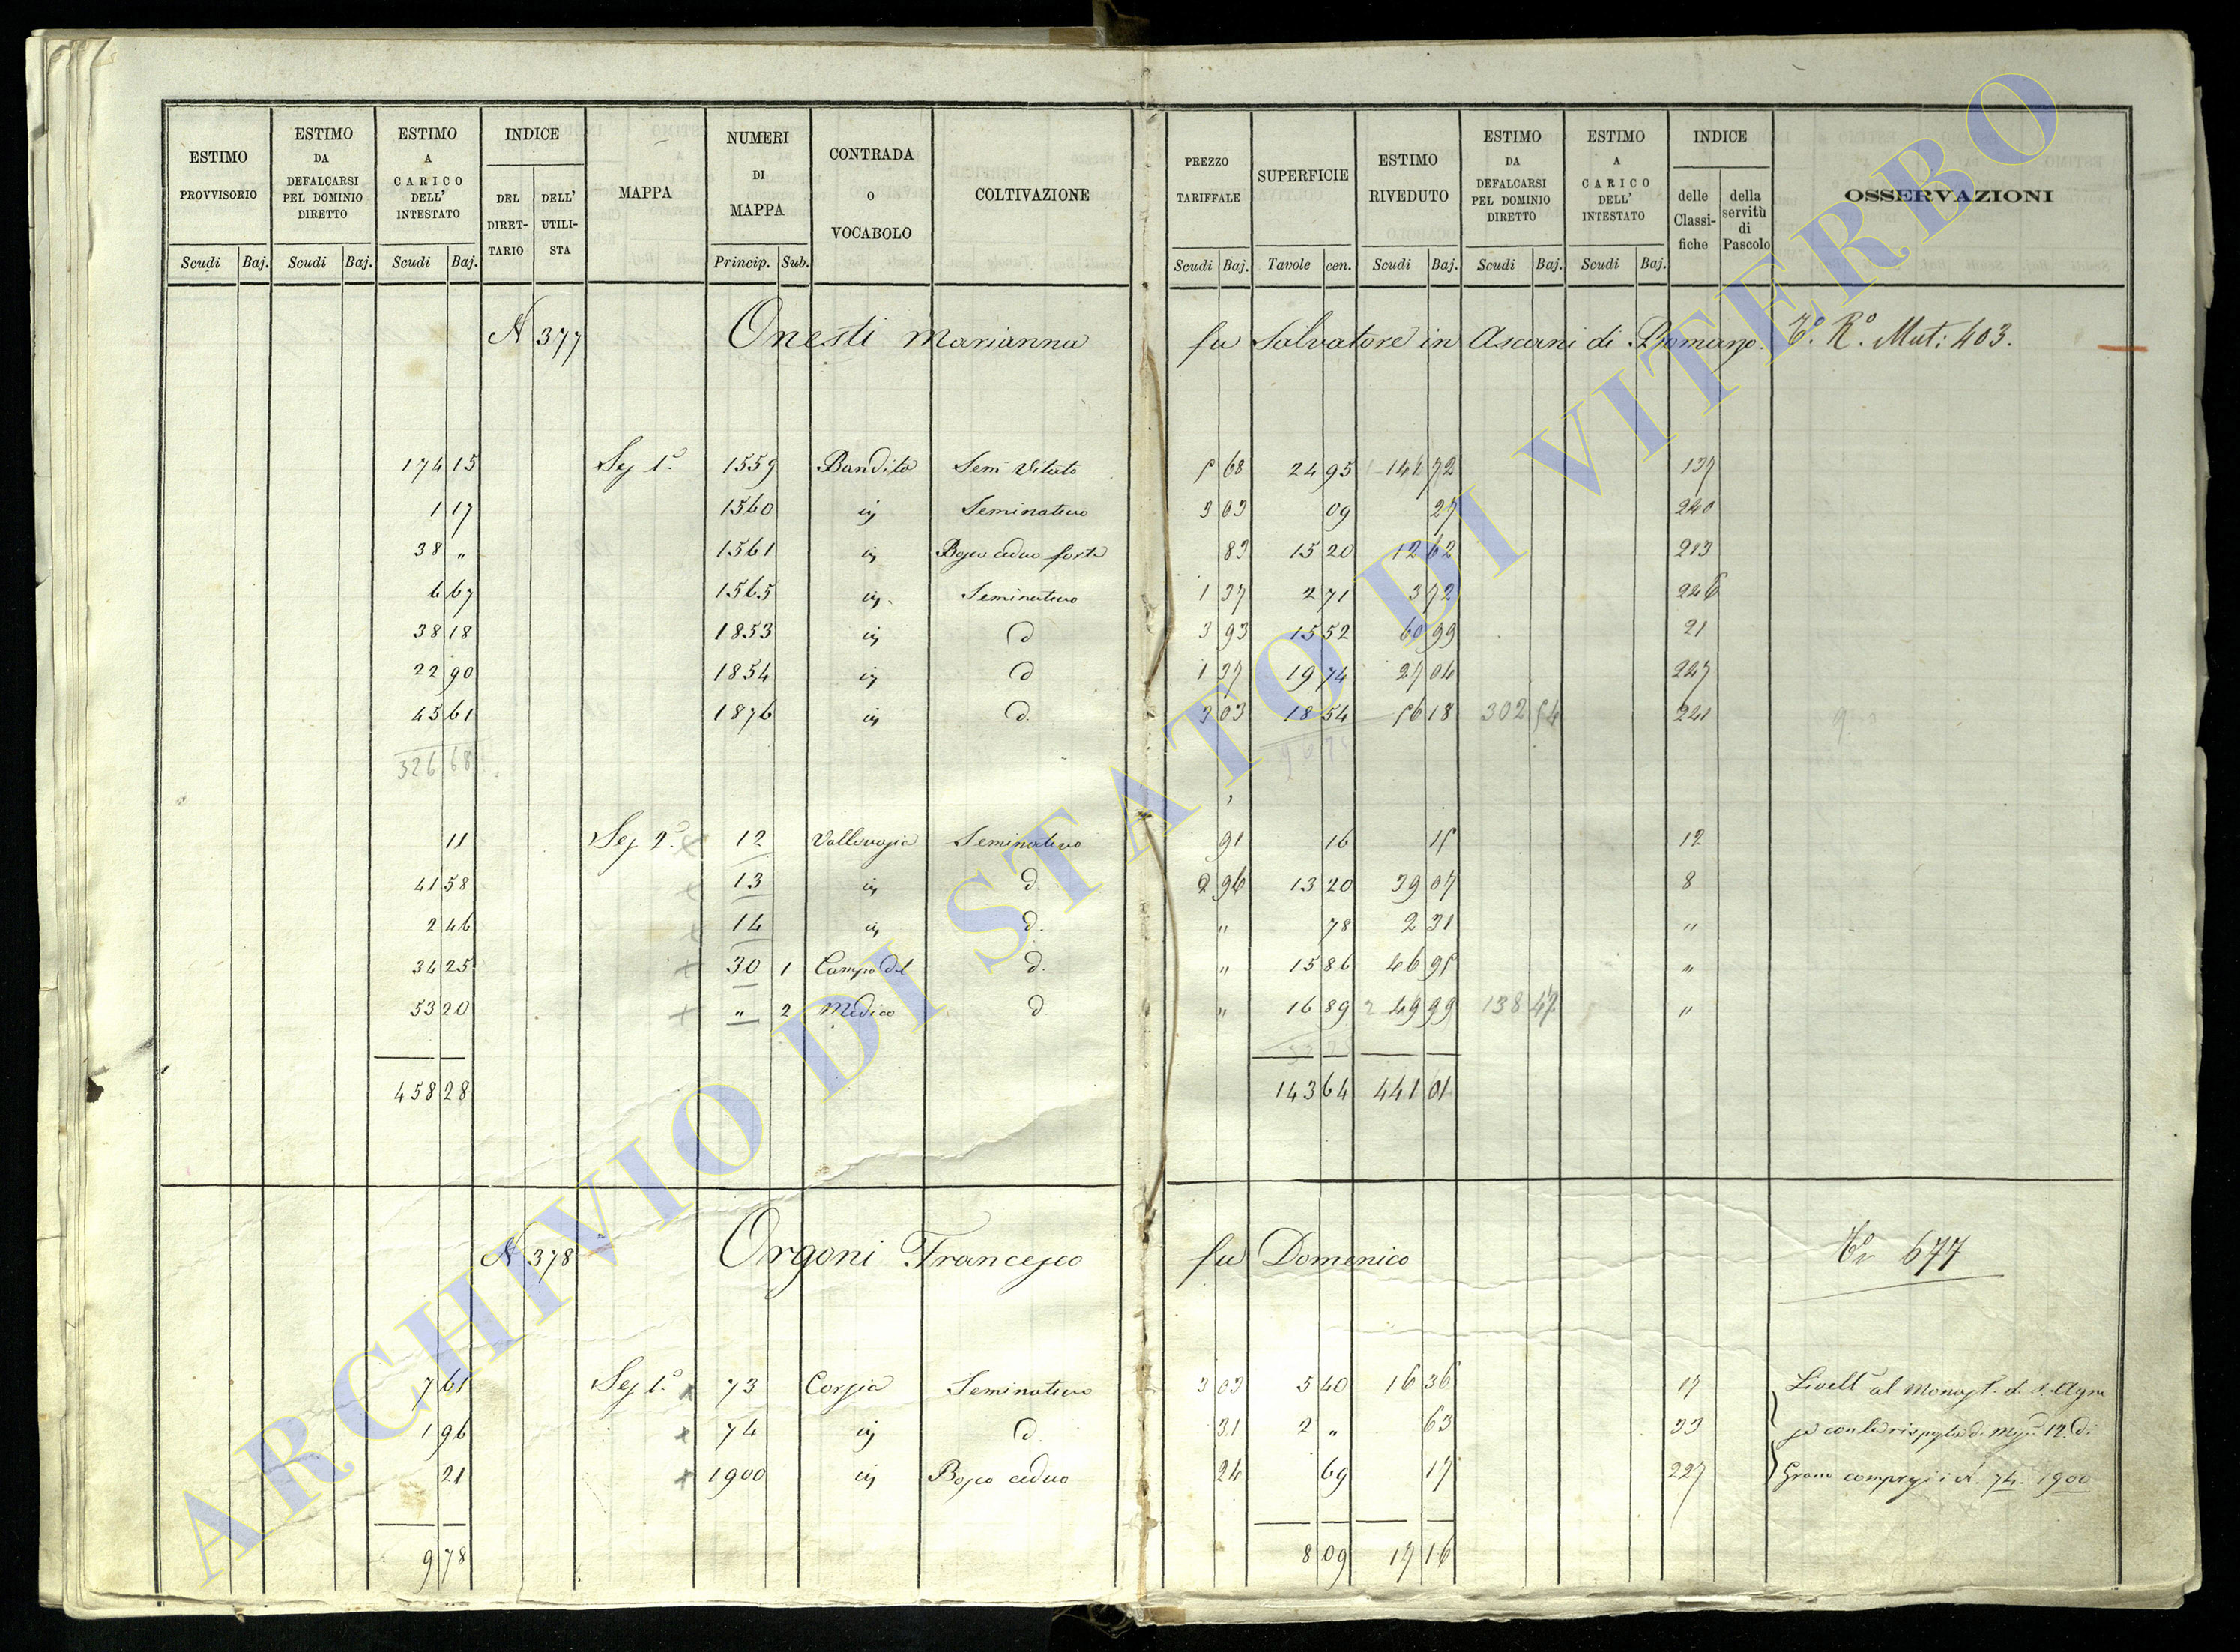 ESTIMO PROVVISORIO | ESTIMO DA DEFALCARSI PEL DOMINIO DIRETTO | ESTIMO A CARICO DELL' INTESTATO | INDICE | MAPPA | NUMERI DI MAPPA | CONTRADA O VOCABOLO | COLTIVAZIONE | PREZZO TARIFFALE | SUPERFICIE | ESTIMO RIVEDUTO | ESTIMO DA DEFALCARSI PEL DOMINIO DIRETTO | ESTIMO A CARICO DELL' INTESTATO | INDICE | OSSERVAZIONI
DEL DIRET-TARIO | DELL' UTILI-STA | delle Classi-fiche | della servitù di Pascolo
Scudi | Baj. | Scudi | Baj. | Scudi | Baj. | Princip. | Sub. | Scudi | Baj. | Tavole | cen. | Scudi | Baj. | Scudi | Baj. | Scudi | Baj.
N 377 Onesti Marianna fu Salvatore in Ascani di Bomarzo. Rº. Mut: 403.
174 15 | Sez 1ª | 1559 | Bandita | Sem Vitato | 5 68 | 24 95 | 141 72 | 137
1 17 | 1560 | id | Seminativo | 3 03 | 09 | 27 | 240
38 " | 1561 | id | Bosco ceduo forte | 83 | 15 20 | 12 62 | 213
6 67 | 1565 | id | Seminativo | 1 37 | 2 71 | 3 72 | 246
38 18 | 1853 | id | d | 3 93 | 15 52 | 60 99 | 21
22 90 | 1854 | id | d | 1 37 | 19 74 | 27 04 | 247
45 61 | 1876 | id | d. | 3 03 | 18 54 | 56 18 | 302 54 | 241
326 68
11 | Sez 2ª | 12 | Seminativo | 91 | 16 | 15 | 12
41 58 | 13 | id | d. | 2 96 | 13 20 | 39 07 | 8
2 46 | 14 | id | d. | " | 78 | 2 31 | "
34 25 | 30 | 1 | Campo del | d. | " | 15 86 | 46 95 | "
53 20 | " | 2 | Medico | d | " | 16 89 | 49 99 | 138 47 | "
458 28 | 143 64 | 441 01
N 378 Orgoni Francesco fu Domenico 677
7 61 | Sez 1ª | 73 | Corsia | Seminativo | 3 03 | 5 40 | 16 36 | 17 | Livellº al Monast. di S. Agne
1 96 | 74 | id | d. | 31 | 2 " | 63 | 33 | se con la risposta di 12 di
21 | 1900 | id | Bosco ceduo | 24 | 69 | 17 | 227 | Grano compresi i N. 74. 1900
9 78 | 8 09 | 17 16
ARCHIVIO DI STATO DI VITERBO